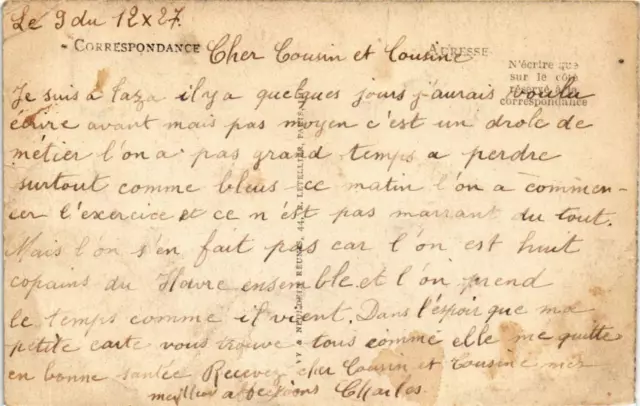 Le 9 du 12 x 27.
CORRESPONDANCE
ADRESSE
Cher Cousin et Cousine
N'écrire que
sur le côté
réservé à la
correspondance
Je suis a Taza il y a quelques jours j'aurais voulu
écrire avant mais pas moyen c'est un drole de
métier l'on a pas grand temps a perdre
surtout comme bleus ce matin l'on a commen-
cer l'exercice et ce n'est pas marrant du tout.
Mais l'on s'en fait pas car l'on est huit
copains du Havre ensemble et l'on prend
le temps comme il vient. Dans l'espoir que ma
petite carte vous trouve tous comme elle me quitte
en bonne santée Recevez cher Cousin et Cousine mes
meilleurs affections Charles.
RÉUNIS, 44, R. LETELLIER, PARIS